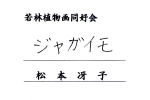 若林植物画同好会
ジャガイモ
松本冴子